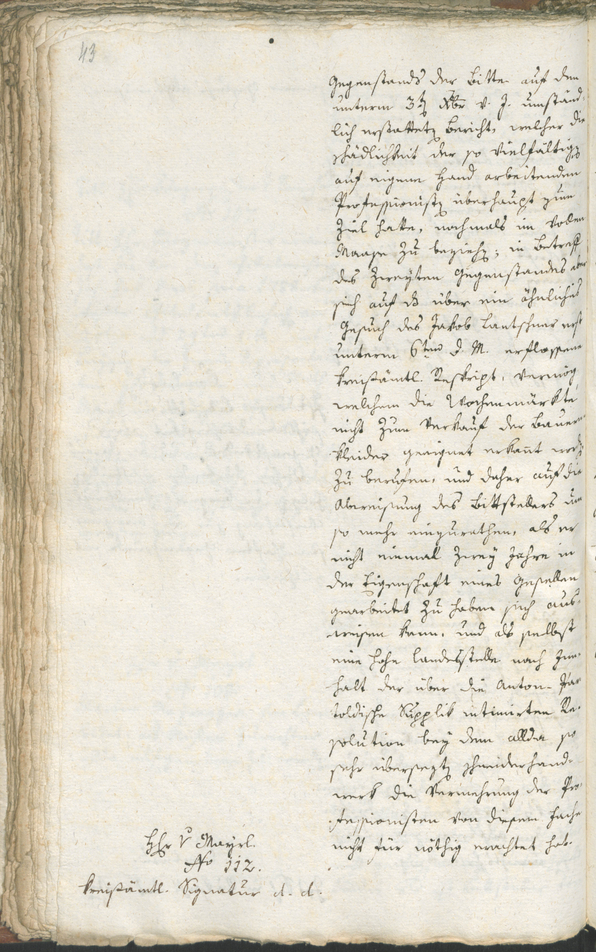 43
Gegenstands der Bitte auf den
unterm 3t Xbr v. J. umständ-
lich erstatteten Bericht, welcher die
schädlichkeit der so vielfältigen
auf eigene Hand arbeitenden
Professionisten überhaupt zum
Ziel hatte, nochmals im vollen
Maaße zu beziehen; in Betreff
des zweyten Gegenstandes aber
sich auf das über ein ähnliches
Gesuch des Jakob Lantschner erst
unterm 6ten d. M. erflossene
kreisämtl. Reskript, vermög
welchem die Wochenmärkte
nicht zum Verkauf der Bauern
kleider geeignet erkannt worden
zu berufen, und daher auf die
Abweisung des Bittstellers um
so mehr einzurathen, als er
nicht einmal zwey Jahre in
der Eigenschaft eines Gesellen
gearbeitet zu haben sich aus-
weisen kann, und als selbst
eine hohe Landesstelle nach Inn-
halt der über die Anton
toldische Supplik intimirten Re-
solution bey dem allda so
sehr übersezten schneiderhand-
werk die Vermehrung der Pro-
fessionisten von diesem Fache
nicht für nöthig erachtet hat.
Hr v Mayrl.
No 112.
kreisämtl. Signatur d. d.